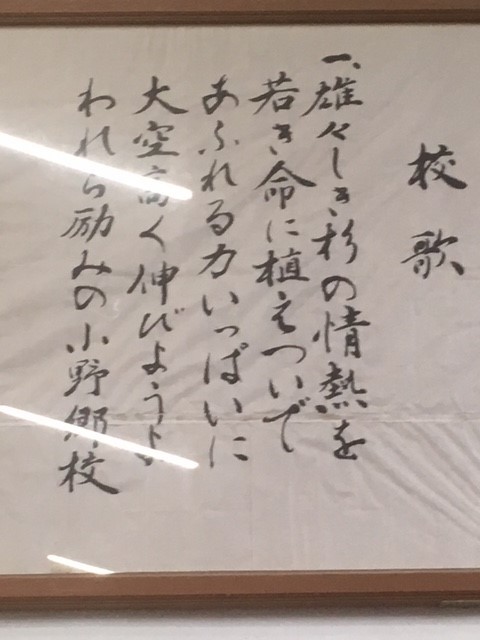 校歌
一、雄々しき杉の情熱を
若き命に植えついで
あふれる力いっぱいに
大空高く伸びようよ
われら励みの小野郷校